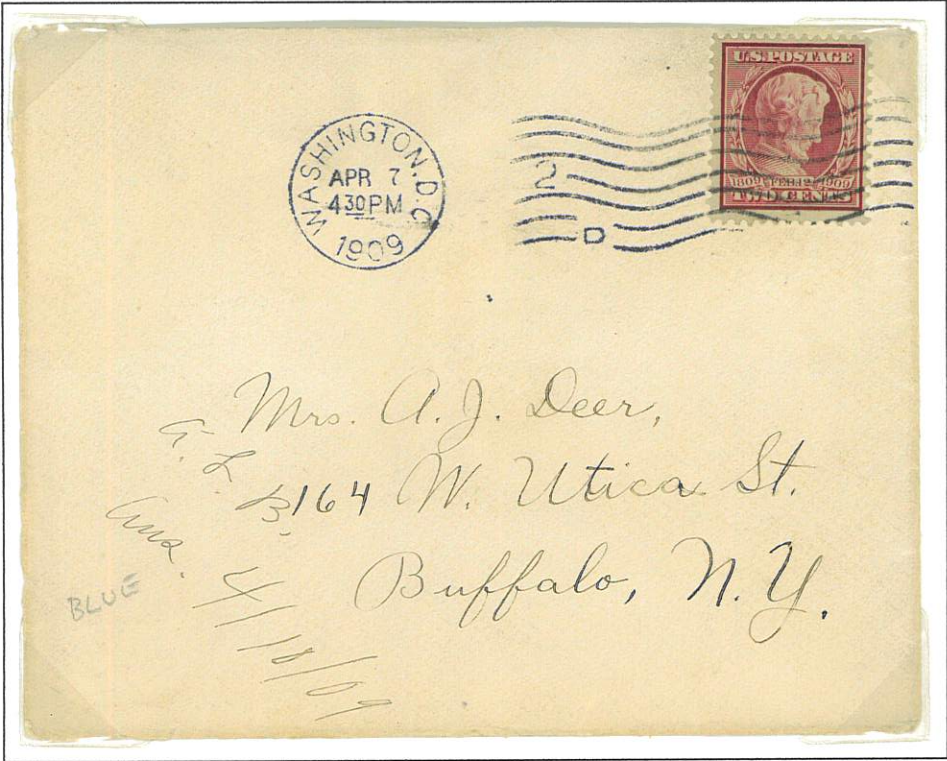 U.S. POSTAGE
1809 FEB 12 1909
TWO CENTS
WASHINGTON, D.C.
APR 7
4 30 PM
1909
2
D
Mrs. A. J. Deer,
164 W. Utica St.
Buffalo, N. Y.
A. L. B.
Ans. 4/18/09
BLUE